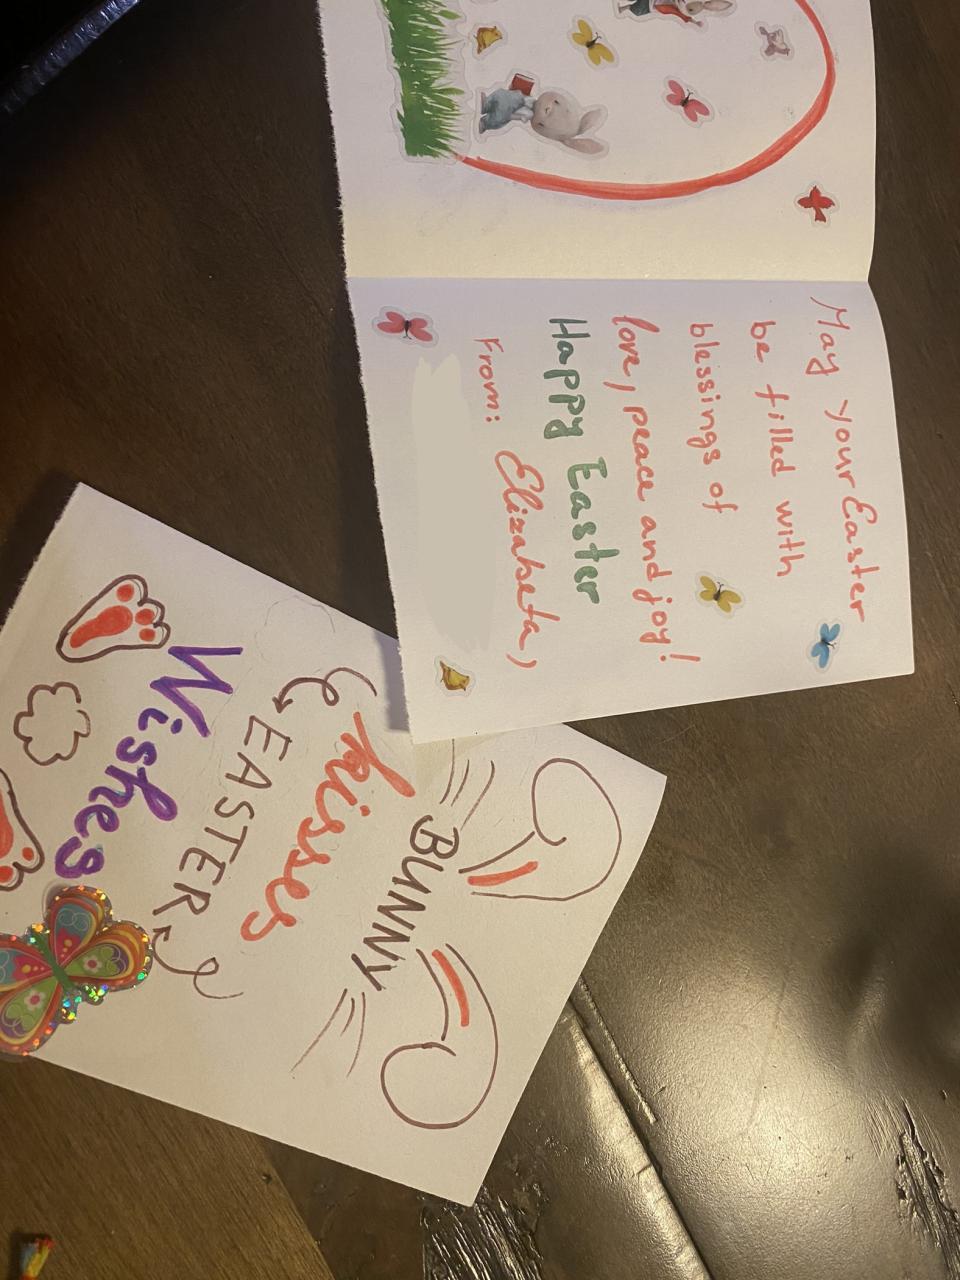 May your Easter
be filled with
blessings of
love, peace and joy!
Happy Easter
From: Elizabeta,
BUNNY
kisses
EASTER
Wishes